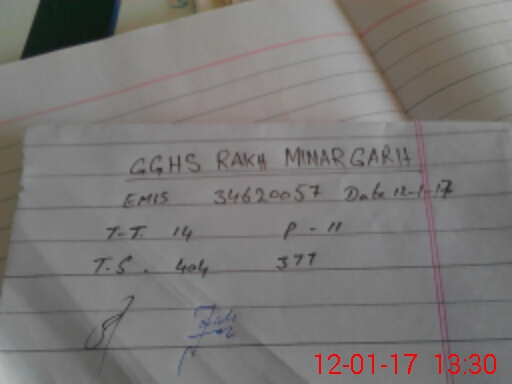 GGHS RAKH MINARGARH
EMIS 34620057 Date 12-1-17
T-T. 14 P - 11
T.S. 404 377
12-01-17 13:30